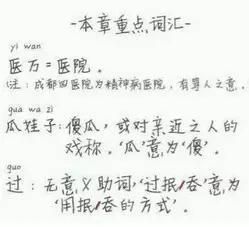 -本章重点词汇-
yi wan
医万=医院。
(注:成都四医院为精神病医院,有骂人之意.
gua wa zi
瓜娃子:傻瓜,或对亲近之人的
戏称。‘瓜’意为‘傻’。
guo
过:无意义助词,‘过抿/吞’意为
‘用抿/吞的方式’.